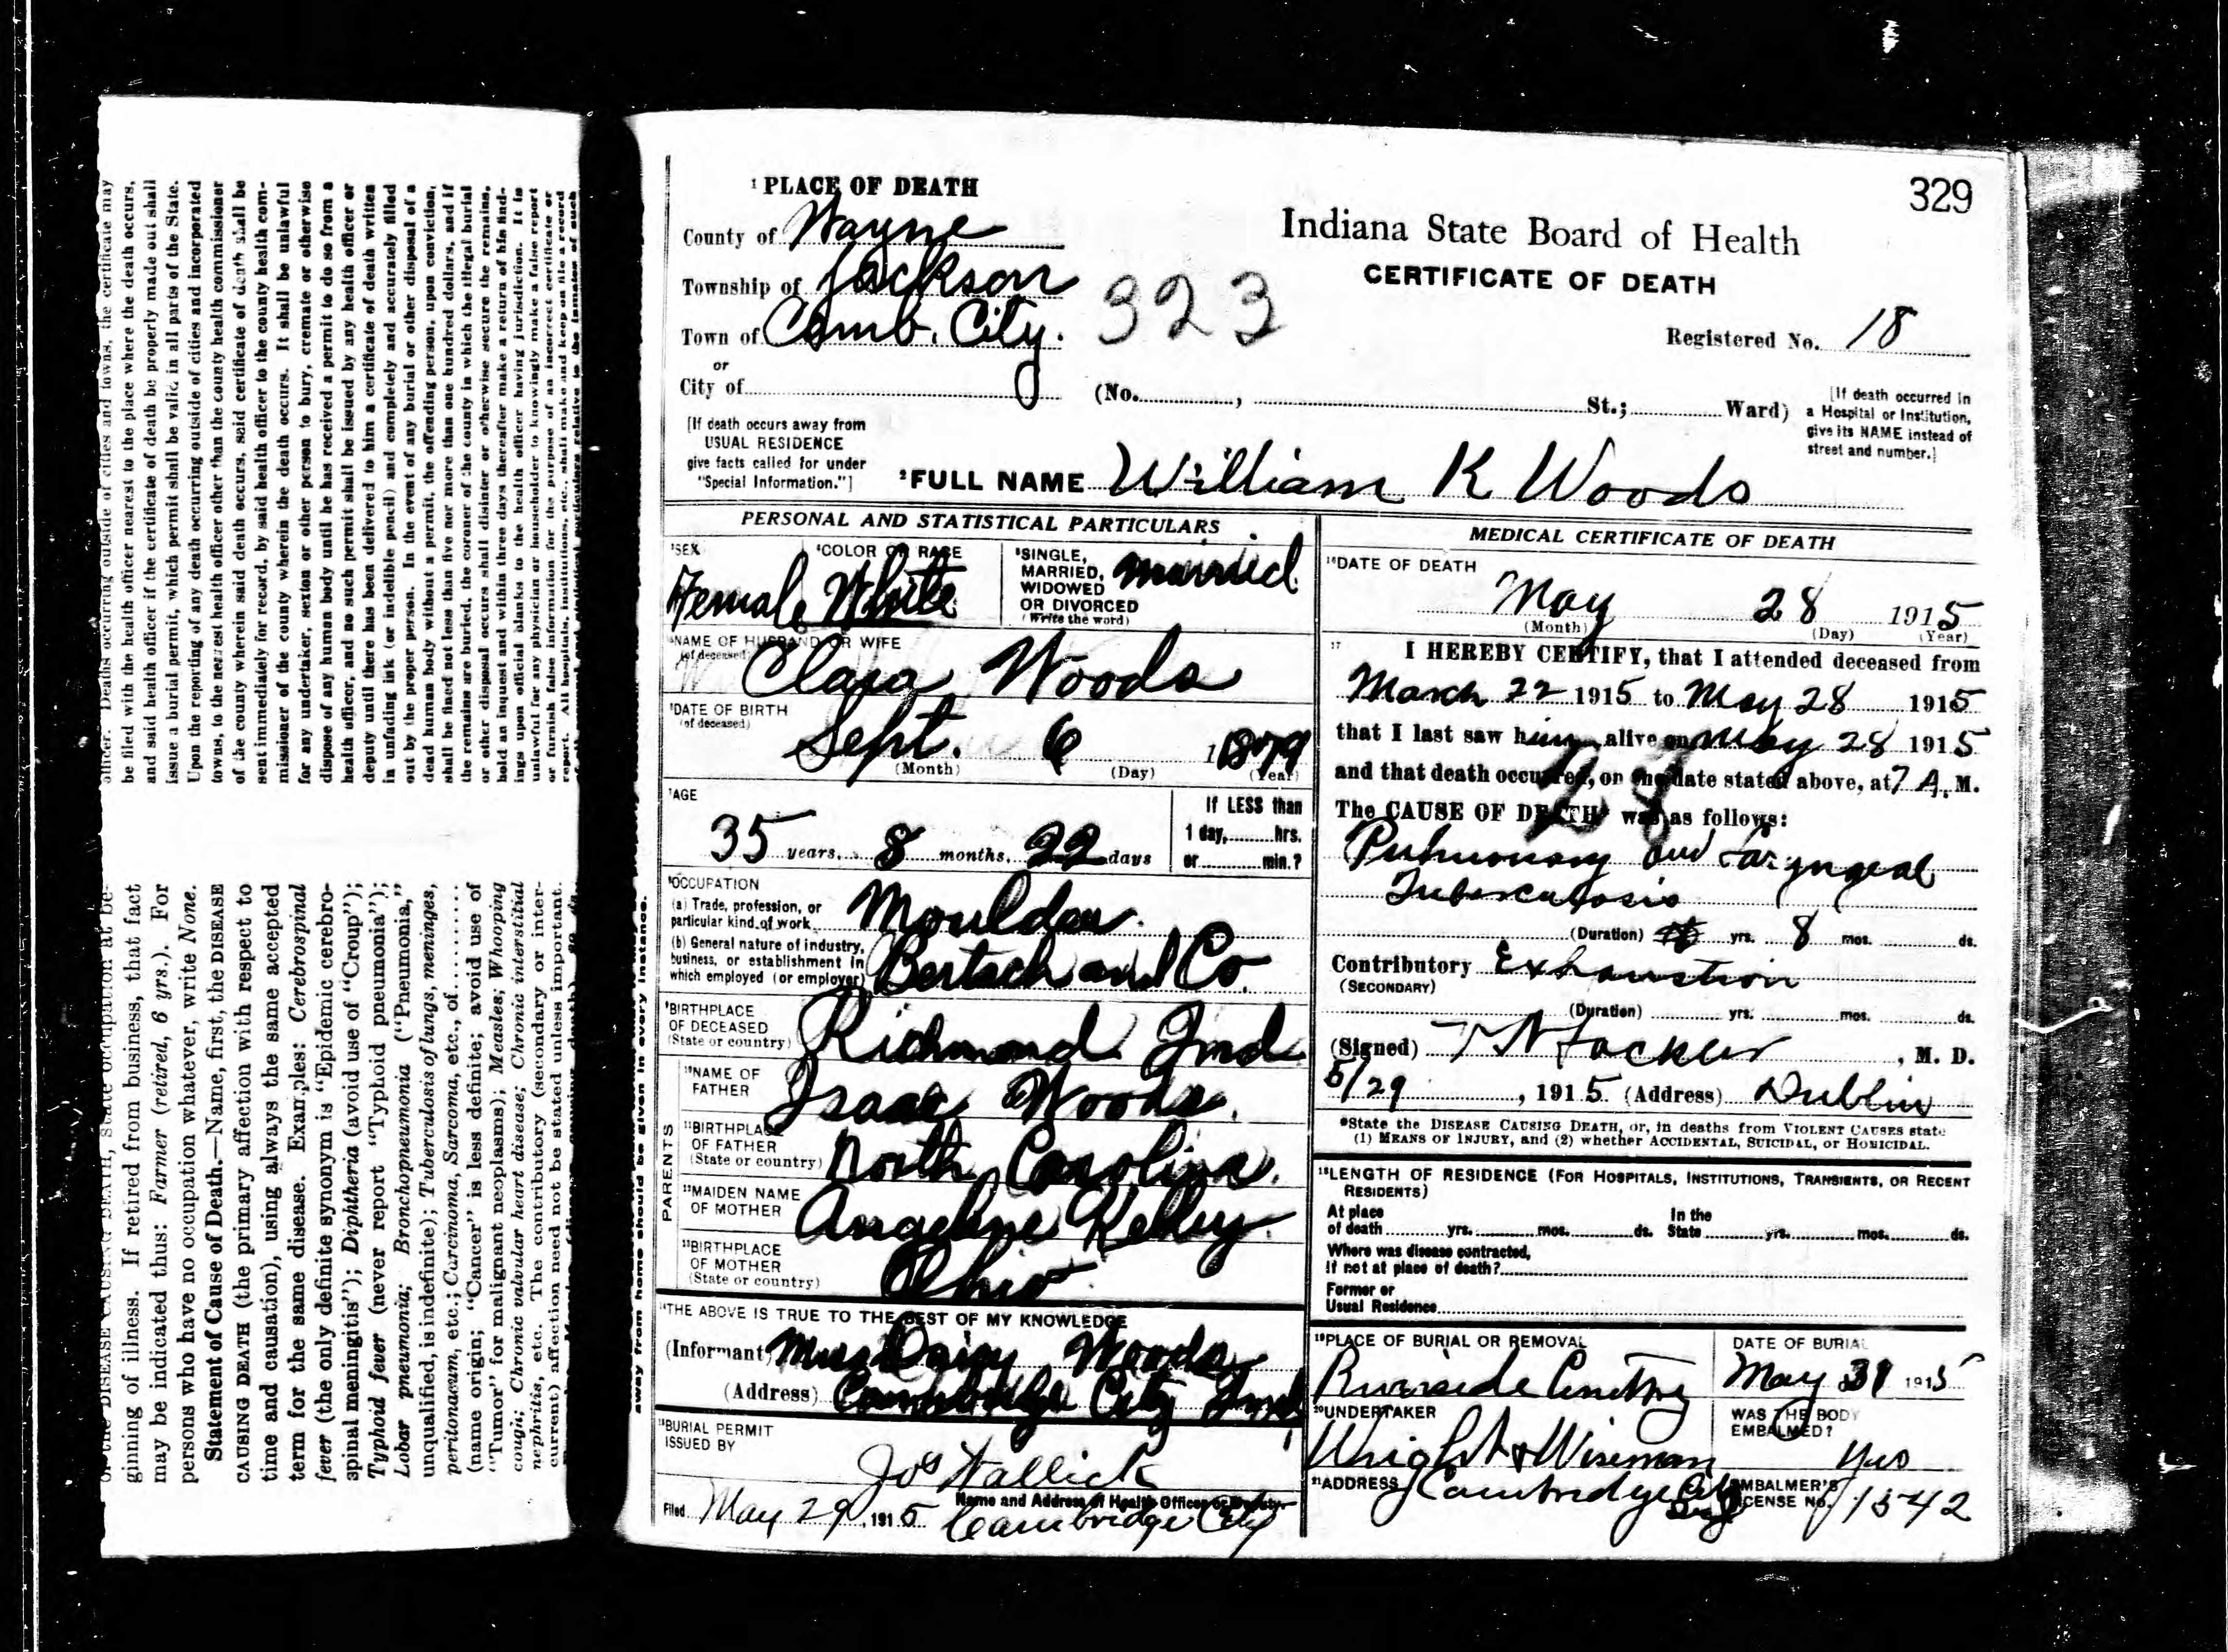 officer. Deaths occurring outside of cities and towns, the certificate may
be filed with the health officer nearest to the place where the death occurs,
and said health officer if the certificate of death be properly made out shall
issue a burial permit, which permit shall be valid in all parts of the State.
Upon the reporting of any death occurring outside of cities and incorporated
towns, to the nearest health officer other than the county health commissioner
of the county wherein said death occurs, said certificate of death shall be
sent immediately for record, by said health officer to the county health com-
missioner of the county wherein the death occurs. It shall be unlawful
for any undertaker, sexton or other person to bury, cremate or otherwise
dispose of any human body until he has received a permit to do so from a
health officer, and no such permit shall be issued by any health officer or
deputy until there has been delivered to him a certificate of death written
in unfading ink (or indelible pencil) and completely and accurately filled
out by the proper person. In the event of any burial or other disposal of a
dead human body without a permit, the offending person, upon conviction,
shall be fined not less than five nor more than one hundred dollars, and if
the remains are buried, the coroner of the county in which the illegal burial
or other disposal occurs shall disinter or otherwise secure the remains,
hold an inquest and within three days thereafter make a return of his find-
ings upon official blanks to the health officer having jurisdiction. It is
unlawful for any physician or householder to knowingly make a false report
or furnish false information for the purpose of an incorrect certificate or
report. All hospitals, institutions, etc., shall make and keep on file a record
of the DISEASE CAUSING DEATH, state occupation at be-
ginning of illness. If retired from business, that fact
may be indicated thus: Farmer (retired, 6 yrs.). For
persons who have no occupation whatever, write None.
Statement of Cause of Death.—Name, first, the DISEASE
CAUSING DEATH (the primary affection with respect to
time and causation), using always the same accepted
term for the same disease. Examples: Cerebrospinal
fever (the only definite synonym is "Epidemic cerebro-
spinal meningitis"); Diphtheria (avoid use of "Croup");
Typhoid fever (never report "Typhoid pneumonia");
Lobar pneumonia; Bronchopneumonia ("Pneumonia,"
unqualified, is indefinite); Tuberculosis of lungs, meninges,
peritonaeum, etc.; Carcinoma, Sarcoma, etc., of..........
(name origin; "Cancer" is less definite; avoid use of
"Tumor" for malignant neoplasms); Measles; Whooping
cough; Chronic valvular heart disease; Chronic interstitial
nephritis, etc. The contributory (secondary or inter-
current) affection need not be stated unless important.
away from home should be given in every instance.
329
1 PLACE OF DEATH
County of Wayne
Township of Jackson
Town of Camb. City.
or
City of
323
Indiana State Board of Health
CERTIFICATE OF DEATH
Registered No. 18
(No. , St.; Ward)
[If death occurred in
a Hospital or Institution,
give its NAME instead of
street and number.]
[If death occurs away from
USUAL RESIDENCE
give facts called for under
"Special Information."]
2FULL NAME William K Woods
PERSONAL AND STATISTICAL PARTICULARS
3SEX
Female
4COLOR OR RACE
White
5SINGLE,
MARRIED,
WIDOWED
OR DIVORCED
(Write the word)
married
NAME OF HUSBAND OR WIFE
(of deceased)
Clara Woods
6DATE OF BIRTH
(of deceased)
Sept. 6 1879
(Month) (Day) (Year)
7AGE
35 years, 8 months, 22 days
If LESS than
1 day, hrs.
or min.?
8OCCUPATION
(a) Trade, profession, or
particular kind of work
Moulder
(b) General nature of industry,
business, or establishment in
which employed (or employer)
Bertsch and Co.
9BIRTHPLACE
OF DECEASED
(State or country)
Richmond Ind.
PARENTS
10NAME OF
FATHER
Isaac Woods.
11BIRTHPLACE
OF FATHER
(State or country)
North Carolina.
12MAIDEN NAME
OF MOTHER
Angeline Kelley.
13BIRTHPLACE
OF MOTHER
(State or country)
Ohio
14THE ABOVE IS TRUE TO THE BEST OF MY KNOWLEDGE
(Informant) Miss Daisy Woods
(Address) Cambridge City Ind
15BURIAL PERMIT
ISSUED BY
Jos Wallick
Name and Address of Health Officer or Deputy
Filed May 29, 1915 Cambridge City
MEDICAL CERTIFICATE OF DEATH
16DATE OF DEATH
May 28 1915
(Month) (Day) (Year)
17 I HEREBY CERTIFY, that I attended deceased from
March 22 1915 to May 28 1915
that I last saw him alive on May 28 1915
and that death occurred, on the date stated above, at 7 A. M.
The CAUSE OF DEATH* was as follows:
Pulmonary and Laryngeal
Tuberculosis
(Duration) yrs. 8 mos. ds.
Contributory Exhaustion
(SECONDARY)
(Duration) yrs. mos. ds.
(Signed) , M. D.
5/29, 1915 (Address) Dublin
*State the DISEASE CAUSING DEATH, or, in deaths from VIOLENT CAUSES state
(1) MEANS OF INJURY, and (2) whether ACCIDENTAL, SUICIDAL, or HOMICIDAL.
18LENGTH OF RESIDENCE (FOR HOSPITALS, INSTITUTIONS, TRANSIENTS, OR RECENT
RESIDENTS)
At place
of death yrs. mos. ds.
In the
State yrs. mos. ds.
Where was disease contracted,
if not at place of death?
Former or
Usual Residence
19PLACE OF BURIAL OR REMOVAL
Riverside Cemetery
DATE OF BURIAL
May 31 1915
20UNDERTAKER
Wright & Wiseman
WAS THE BODY
EMBALMED?
Yes
21ADDRESS
Cambridge City
Ind
EMBALMER'S
LICENSE NO. 1542